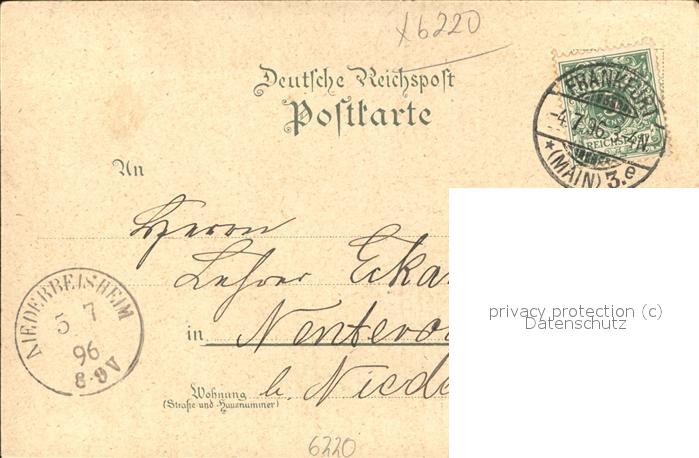 x6220
Deutsche Reichspost
Postkarte
FRANKFURT
4.7.96
REICHSPOST
*(MAIN) 3.e
An
Herrn
Lehrer Ecka
privacy protection (c)
Datenschutz
NIEDERBEISHEIM
5 7
96
8-9V
in
b. Niede
Wohnung
(Straße und Hausnummer)
6220